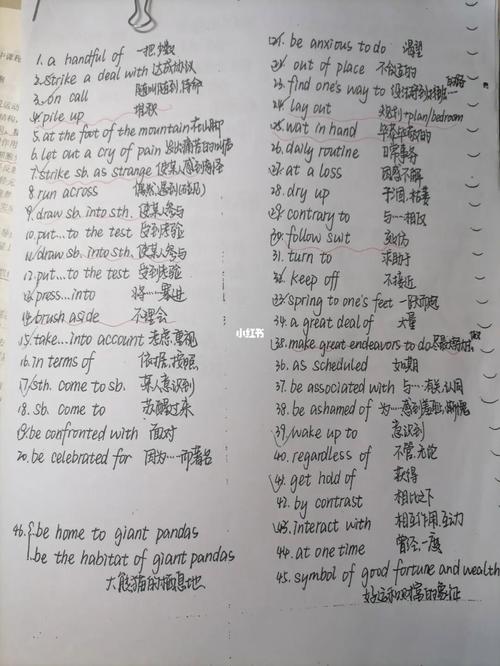 1. a handful of 一把、少数
2. strike a deal with 达成协议
3. on call 随叫随到、待命
4. pile up 堆积
5. at the foot of the mountain 在山脚
6. let out a cry of pain 发出痛苦的叫声
7. strike sb. as strange 使某人感到奇怪
8. run across 偶然遇到
9. draw sb. into sth. 使某人参与
10. put...to the test 受到考验
11. draw sb. into sth. 使某人参与
12. put...to the test 受到考验
13. press...into 将……裹进
14. brush aside 不理会
15. take...into account 考虑、重视
16. in terms of 依据、按照
17. sth. come to sb. 某人意识到
18. sb. come to 苏醒过来
19. be confronted with 面对
20. be celebrated for 因为……而著名
46. be home to giant pandas
be the habitat of giant pandas
大熊猫的栖息地
21. be anxious to do 渴望
22. out of place 不合适的
23. find one's way to
24. lay out 规划+plan/bedroom
25. wait in hand
26. daily routine 日常事务
27. at a loss 困惑不解
28. dry up 干涸、枯萎
29. contrary to 与……相反
30. follow suit 效仿
31. turn to 求助于
32. keep off 不接近
33. spring to one's feet 一跃而起
34. a great deal of 大量
35. make great endeavors to do 尽最大努力做
36. as scheduled 如期
37. be associated with 与……有关、认同
38. be ashamed of 为……感到羞耻、惭愧
39. wake up to 意识到
40. regardless of 不管、无论
41. get hold of 获得
42. by contrast 相比之下
43. interact with 相互作用、互动
44. at one time 曾经、一度
45. symbol of good fortune and wealth
好运和财富的象征
小红书